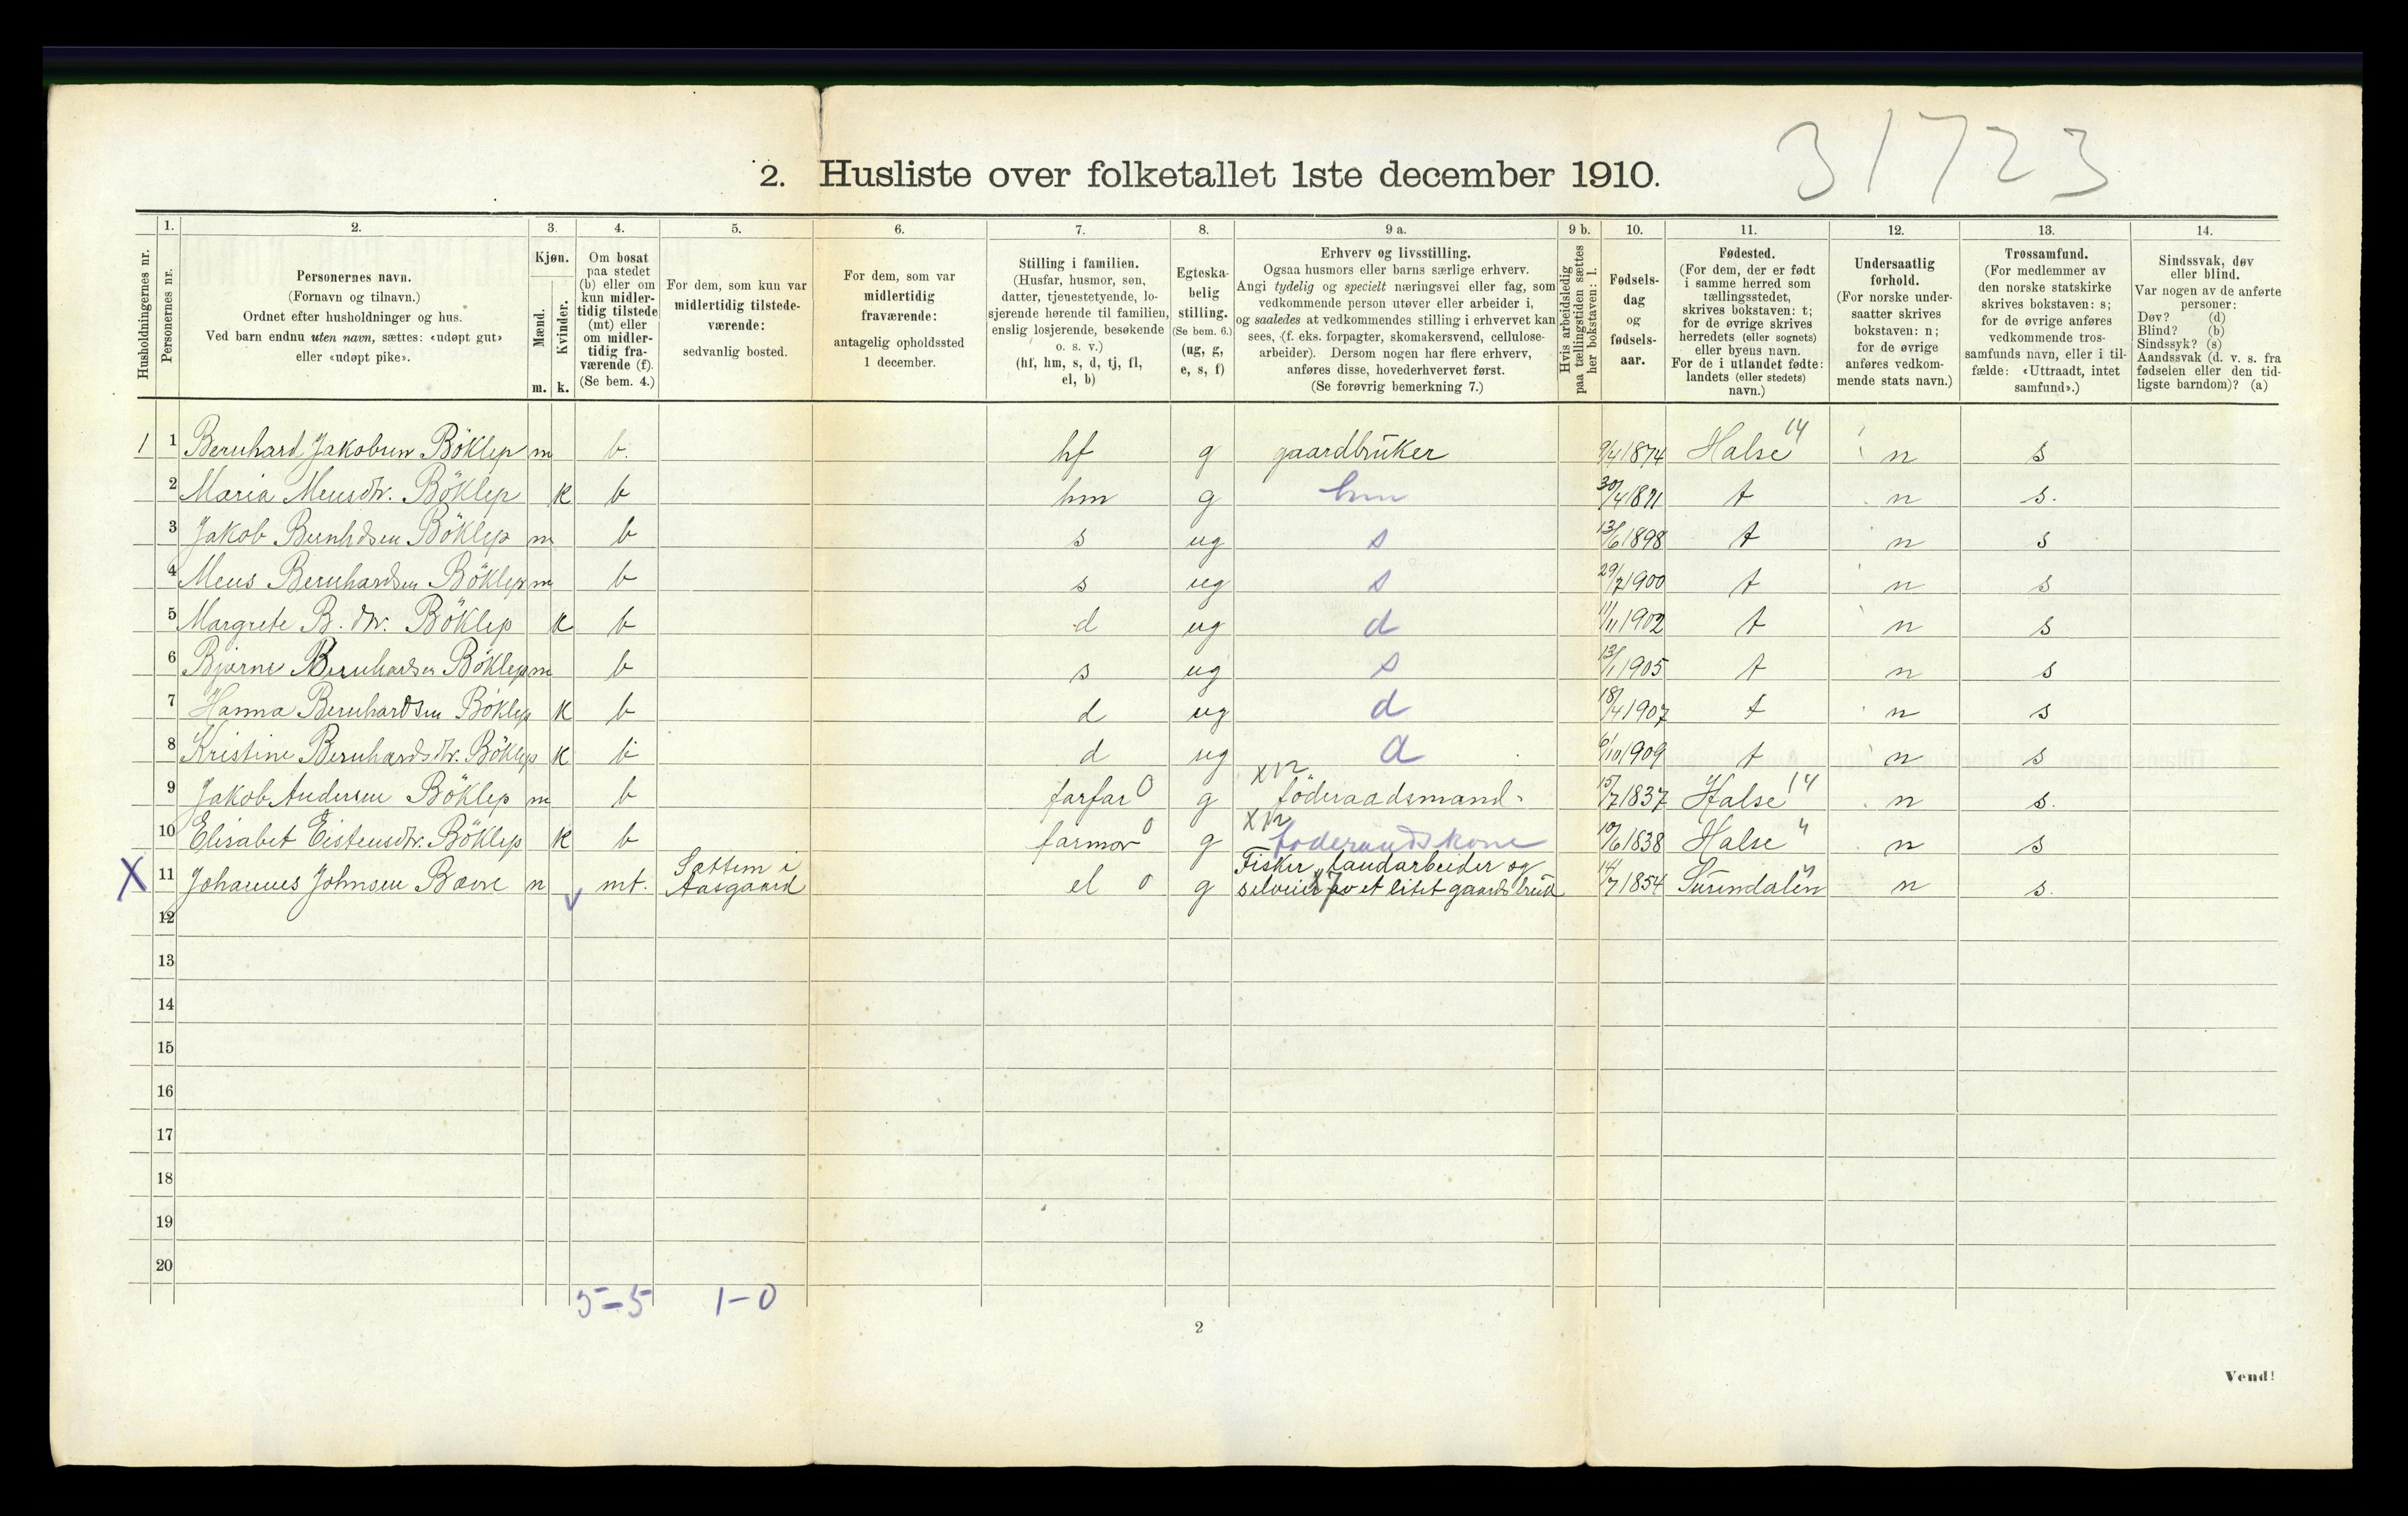 31723
2. Husliste over folketallet 1ste december 1910.
Husholdningernes nr.
1.
Personernes nr.
2.
Personernes navn.
(Fornavn og tilnavn.)
Ordnet efter husholdninger og hus.
Ved barn endnu uten navn, sættes: «udøpt gut»
eller «udøpt pike».
3.
Kjøn.
Mænd.
m.
Kvinder.
k.
4.
Om bosat
paa stedet
(b) eller om
kun midler-
tidig tilstede
(mt) eller
om midler-
tidig fra-
værende (f).
(Se bem. 4.)
5.
For dem, som kun var
midlertidig tilstede-
værende:
sedvanlig bosted.
6.
For dem, som var
midlertidig
fraværende:
antagelig opholdssted
1 december.
7.
Stilling i familien.
(Husfar, husmor, søn,
datter, tjenestetyende, lo-
sjerende hørende til familien,
enslig losjerende, besøkende
o. s. v.)
(hf, hm, s, d, tj, fl,
el, b)
8.
Egteska-
belig
stilling.
(Se bem. 6.)
(ug, g,
e, s, f)
9 a.
Erhverv og livsstilling.
Ogsaa husmors eller barns særlige erhverv.
Angi tydelig og specielt næringsvei eller fag, som
vedkommende person utøver eller arbeider i,
og saaledes at vedkommendes stilling i erhvervet kan
sees, (f. eks. forpagter, skomakersvend, cellulose-
arbeider). Dersom nogen har flere erhverv,
anføres disse, hovederhvervet først.
(Se forøvrig bemerkning 7.)
9 b.
Hvis arbeidsledig
paa tællingstiden sættes
her bokstaven: l.
10.
Fødsels-
dag
og
fødsels-
aar.
11.
Fødested.
(For dem, der er født
i samme herred som
tællingsstedet,
skrives bokstaven: t;
for de øvrige skrives
herredets (eller sognets)
eller byens navn.
For de i utlandet fødte:
landets (eller stedets)
navn.)
12.
Undersaatlig
forhold.
(For norske under-
saatter skrives
bokstaven: n;
for de øvrige
anføres vedkom-
mende stats navn.)
13.
Trossamfund.
(For medlemmer av
den norske statskirke
skrives bokstaven: s;
for de øvrige anføres
vedkommende tros-
samfunds navn, eller i til-
fælde: «Uttraadt, intet
samfund».)
14.
Sindssvak, døv
eller blind.
Var nogen av de anførte
personer:
Døv? (d)
Blind? (b)
Sindssyk? (s)
Aandssvak (d. v. s. fra
fødselen eller den tid-
ligste barndom)? (a)
1 1 Bernhard Jakobsen Böklep m b. hf g gaardbruker 9/4 1874 Halse 14 n s
2 Maria Mensdtr. Böklep k b hm g hm 30/4 1871 t n s.
3 Jakob Bernhdsen Böklep m b s ug s 13/6 1898 t n s
4 Mens Bernhardsen Böklep m b s ug s 29/7 1900 t n s
5 Margrete B. dtr. Böklep k b d ug d 11/11 1902 t n s
6 Bjarne Bernhardsen Böklep m b s ug s 13/1 1905 t n s
7 Hanna Bernhardsen Böklep k b d ug d 18/4 1907 t n s
8 Kristine Bernhardsdtr. Böklep k b d ug d 6/10 1909 t n s
9 Jakob Andersen Böklep m b farfar 0 g föderaadsmand 15/7 1837 Halse 14 n s.
10 Elisabet Eistensdtr. Böklep k b farmor 0 g foderaadskone 10/6 1838 Halse " n s
X 11 Johannes Johnsen Bævre m mt. Settem i Aasgaard el 0 g Fisker, landarbeider og
selveier av et litet gaardsbruk 14/7 1854 Surendalen n s.
12
13
14
15
16
17
18
19
20
5-5 1-0
2
Vend!